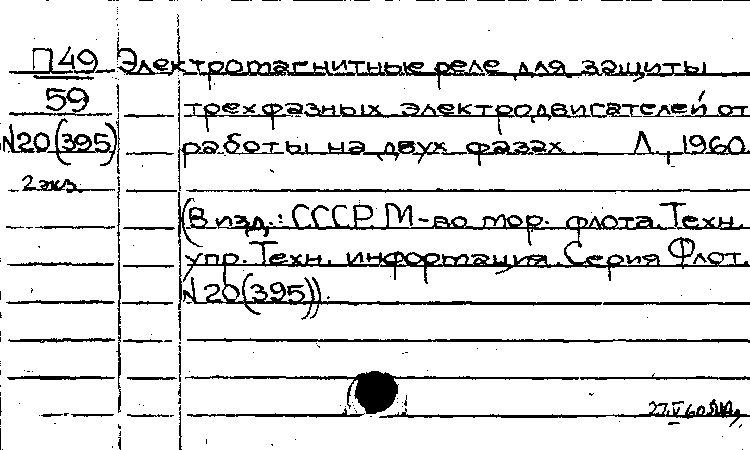 П49 Электромагнитные реле для защиты
59 трехфазных электродвигателей от
N20(395) работы на двух фазах Л., 1960
2 экз.
(В изд.: СССР. М-во мор. флота. Техн.
упр. Техн. информация. Серия Флот.
N20(395)).
27.V 60